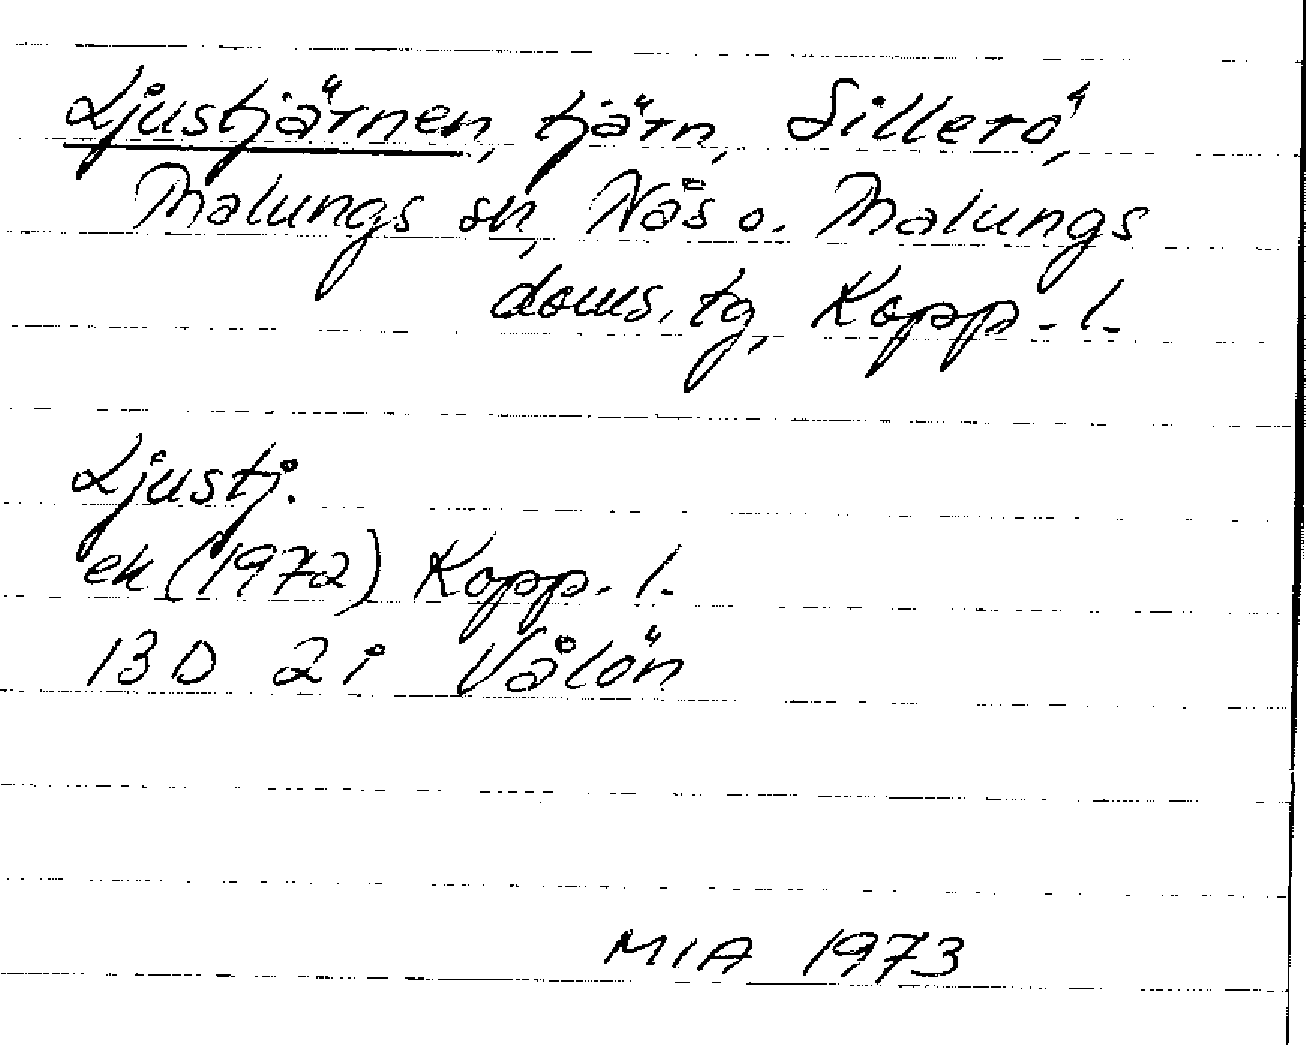 Ljustjärnen, tjärn, Sillerö,
Malungs sn, Nås o. Malungs
doms. tg, Kopp. l.
Ljustj.
ek (1972) Kopp. l.
13 D 2 i Vålön
MIA 1973